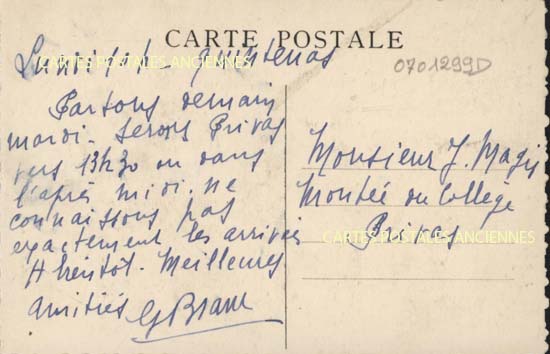 CARTE POSTALE
CARTES POSTALES ANCIENNES
0701299D
Lundi Quintenas
Partons demain
mardi. Serons Privas
vers 13h30 ou dans
l'après midi. ne
connaissons pas
exactement les arrivées
A bientôt. Meilleures
amitiés
Monsieur J. Magis
Montée du Collège
Privas
CARTES POSTALES ANCIENNES